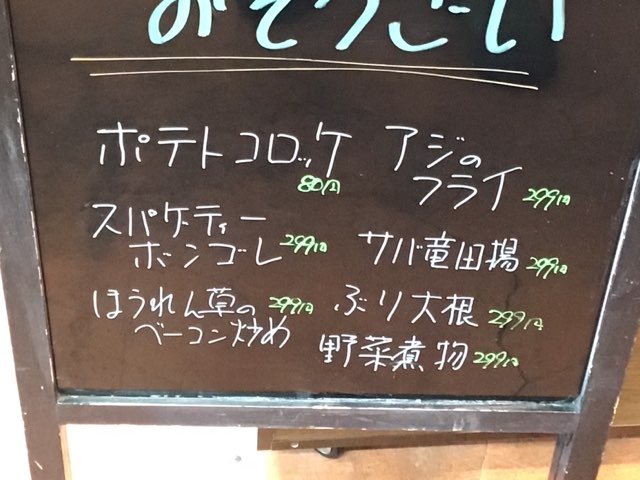 おそうざい
ポテトコロッケ
80円
スパゲティー
ボンゴレ 299円
ほうれん草の 299円
ベーコン炒め
アジの
フライ 299円
サバ竜田場 299円
ぶり大根 299円
野菜煮物 299円